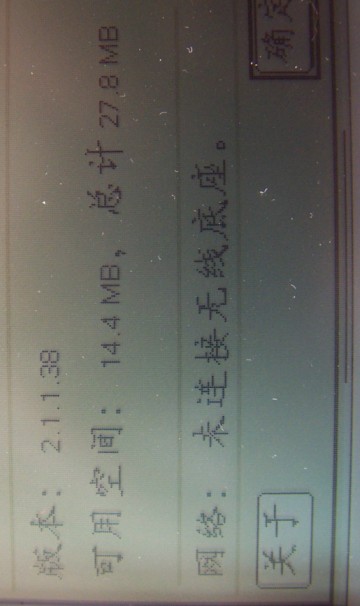 版本：2.1.1.38
可用空间：14.4 MB，总计 27.8 MB
网络：未连接无线底座。
关于
确定